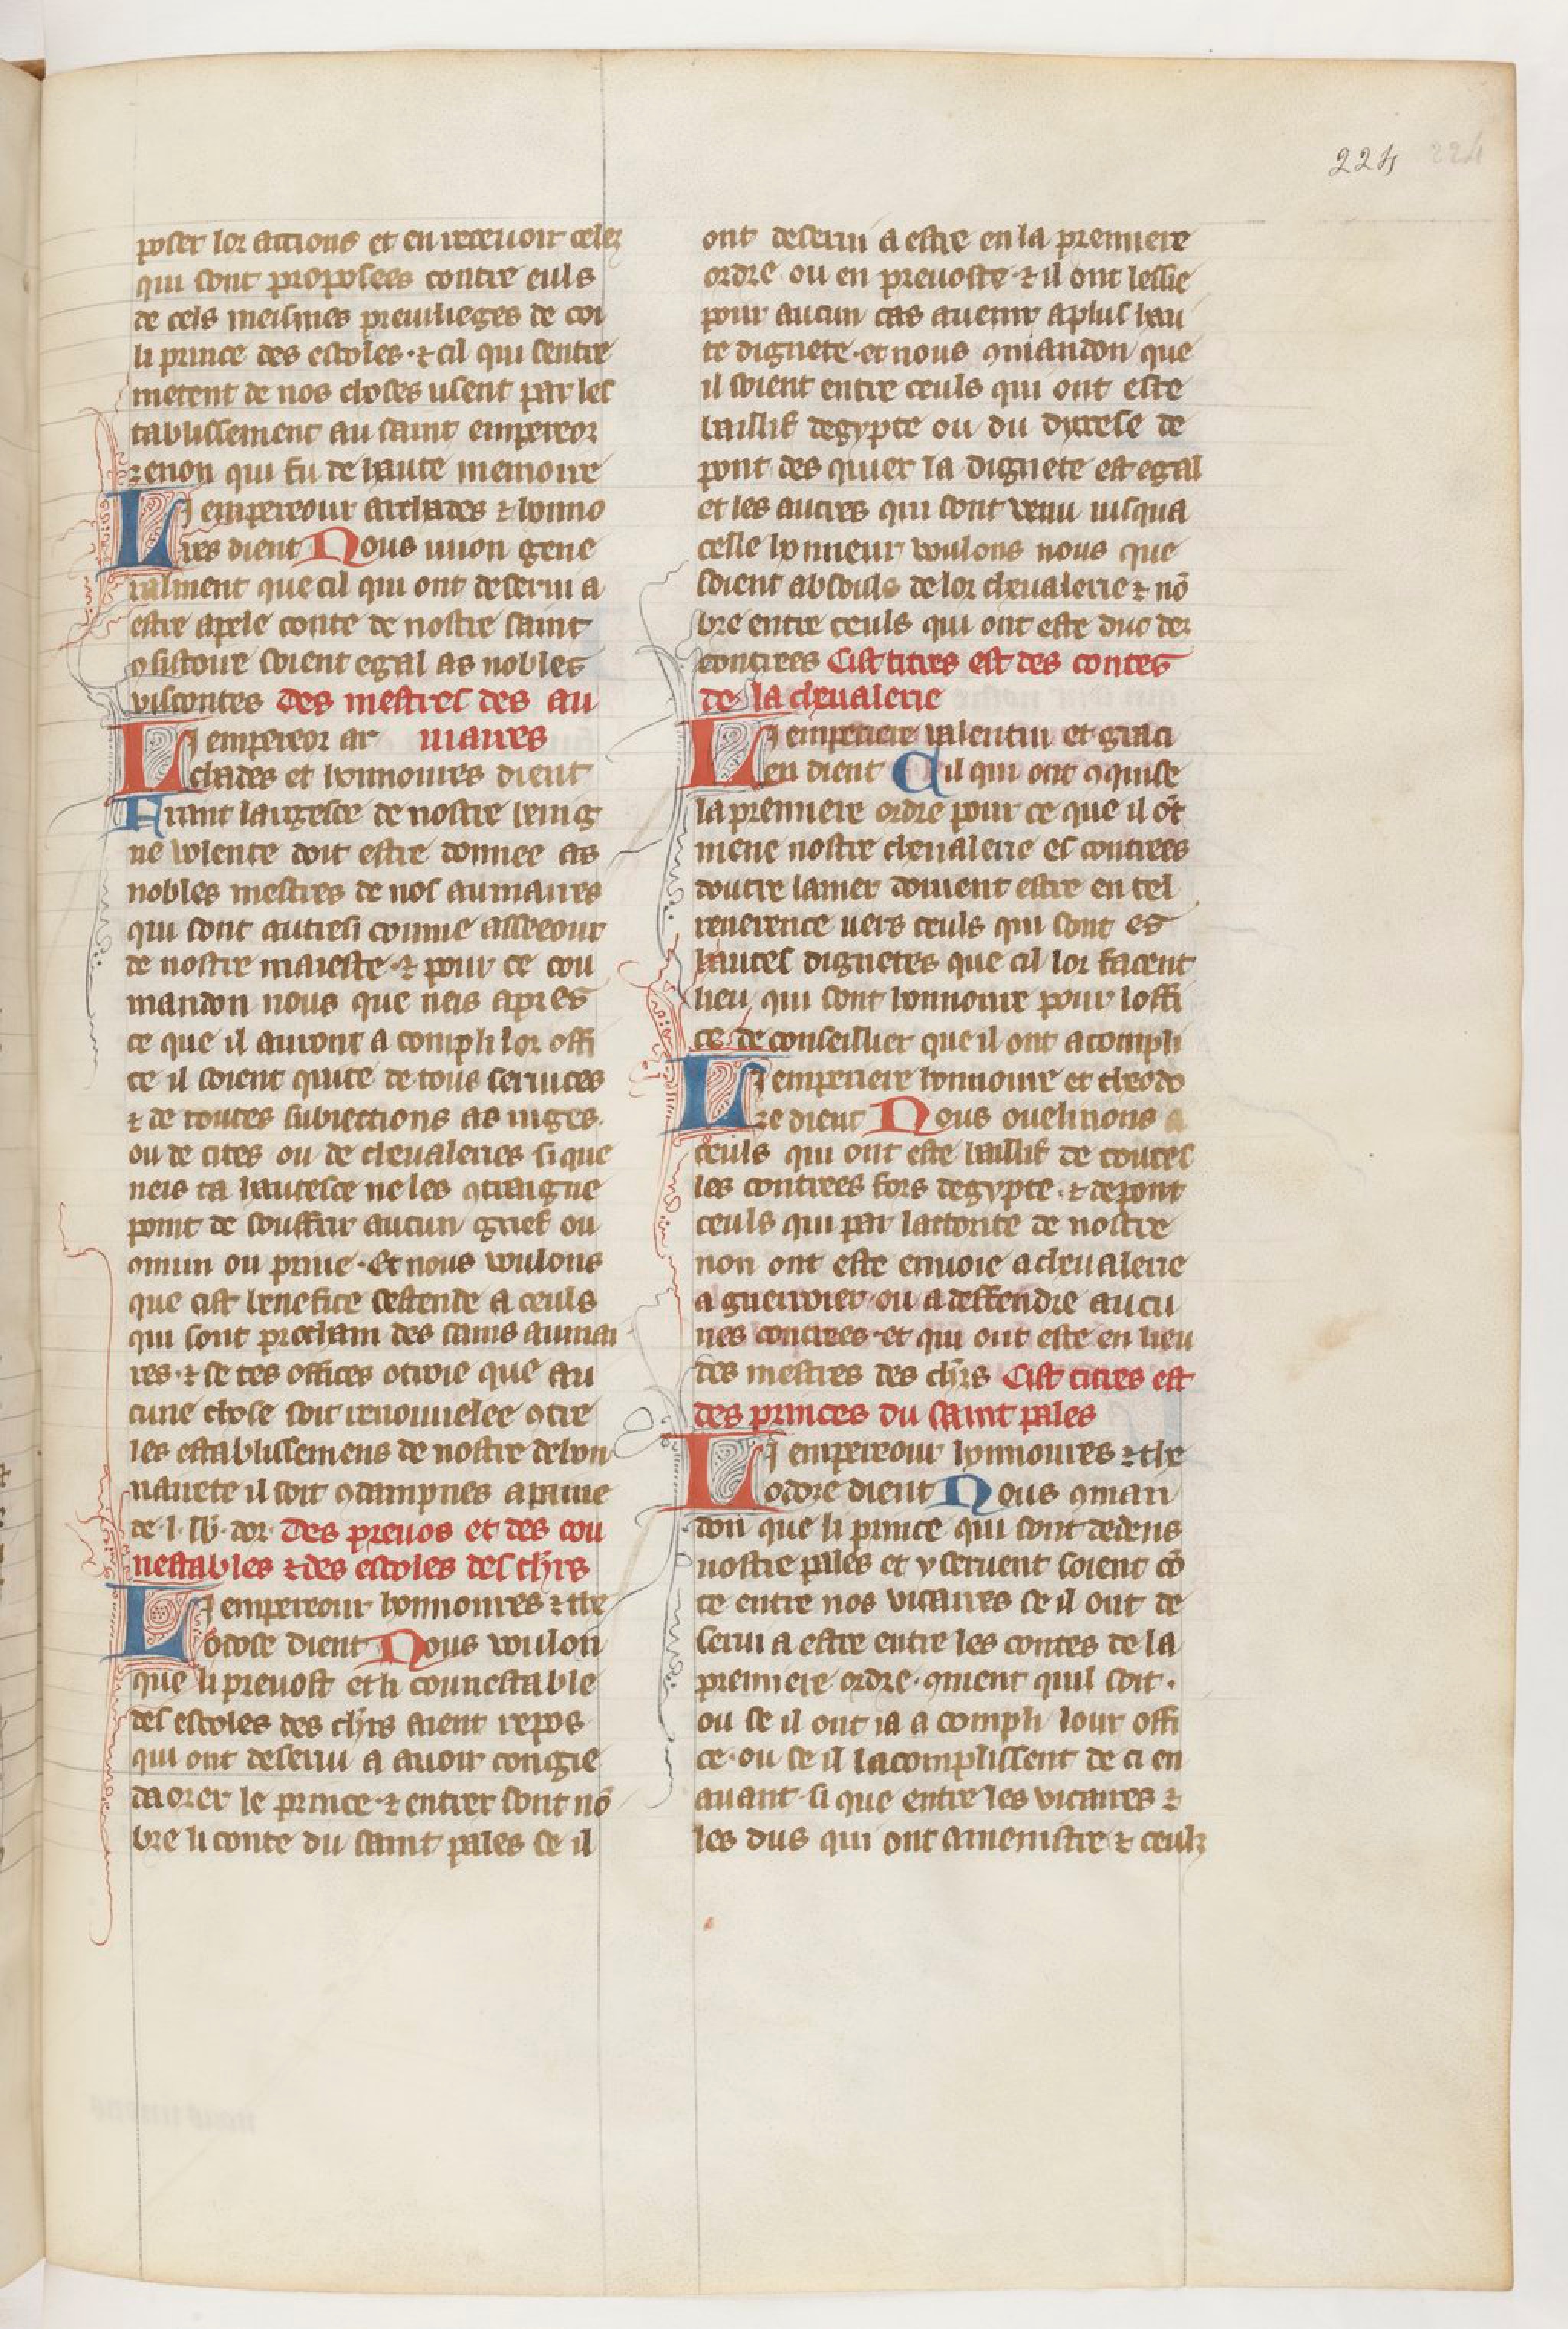 224 224
poser lor actions et en receuoir celes
qui sont proposees contre euls
de cels meismes preuilieges de coi
li prince des escoles · ⁊ cil qui sentre
metent de nos choses usent par les
tablissement au saint empereor
zenon qui fu de haute memoire
Li empereour archades ⁊ honno
ires dient Nous uuon gene
ralment que cil qui ont deserui a
estre apele conte de nostre saint
ꝯsistoire soient egal as nobles
viscontes Des mestres des au
Li empereor ar maires
chades et honnoires dient
Auant largesce de nostre benig
ne volente doit estre donnee as
nobles mestres de nos aumaires
qui sont autresi comme asseeour
de nostre maieste · ⁊ pour ce cou
mandon nous que neis apres
ce que il auront a compli lor offi
ce il soient quite de tous seruices
⁊ de toutes subiections as iuges ·
ou de cites ou de cheualeries si que
neis ta hautesce ne les ꝯtraigne
point de souffrir aucun grief ou
ꝯmun ou priue · Et nous voulons
que cist benefice sestende a ceuls
qui sont prochain des sains aumai
res · ⁊ se tes offices otroie que au
cune chose soit renouuelee ꝯtre
les establissemens de nostre debon
nairete il soit ꝯdampnes a paine
de · l · lb · dor · Des preuos et des cou
nestables ⁊ des escoles des chrs
Li empereour honnoires ⁊ the
odose dient Nous voulon
que li preuost et li counestable
des escoles des chrs aient repos
qui ont deserui a auoir congie
daorer le prince · ⁊ entrer sont nō
bre li conte du saint pales se il
ont deserui a estre en la premiere
ordre ou en preuoste · ⁊ il ont lessie
pour aucun cas auenir a plus hau
te dignete · et nous ꝯmandon que
il soient entre ceuls qui ont este
baillif degypte ou du dyocese de
pont des quier la dignete est egal
et les autres qui sont venu iusqua
celle honneur voulons nous que
soient absouls de lor cheualerie ⁊ nō
bre entre ceuls qui ont este duc des
contrees Cist titres est des contes
de la cheualerie
Li emperiere valentin et graci
en dient Cil qui ont ꝯquise
la premiere ordre pour ce que il ōt
mene nostre cheualerie es contrees
doutre la mer doiuent estre en tel
reuerence uers ceuls qui sont es
hautes dignetes que cil lor facent
lieu qui sont honnoire pour loffi
ce de conseillier que il ont acompli
Li emperiere honnoire et theodo
re dient Nous ouelinons a
ceuls qui ont este baillif de toutes
les contrees fors degypte · ⁊ de pont
ceuls qui par lattorite de nostre
non ont este enuoie a cheualerie
a guerroier · ou a deffendre aucu
nes contrees · et qui ont este en lieu
des mestres des chrs Cist titres est
des princes du saint pales
Li empereour honnoires ⁊ the
odore dient Nous ꝯman
don que li prince qui sont dedens
nostre pales et y seruent soient cō
te entre nos vicaires se il ont de
serui a estre entre les contes de la
premiere ordre · ꝯment quil soit ·
ou se il ont ia a compli lour offi
ce · ou se il lacomplissent de ci en
auant · si que entre les vicaires ⁊
les dus qui ont amenistre ⁊ ceuls